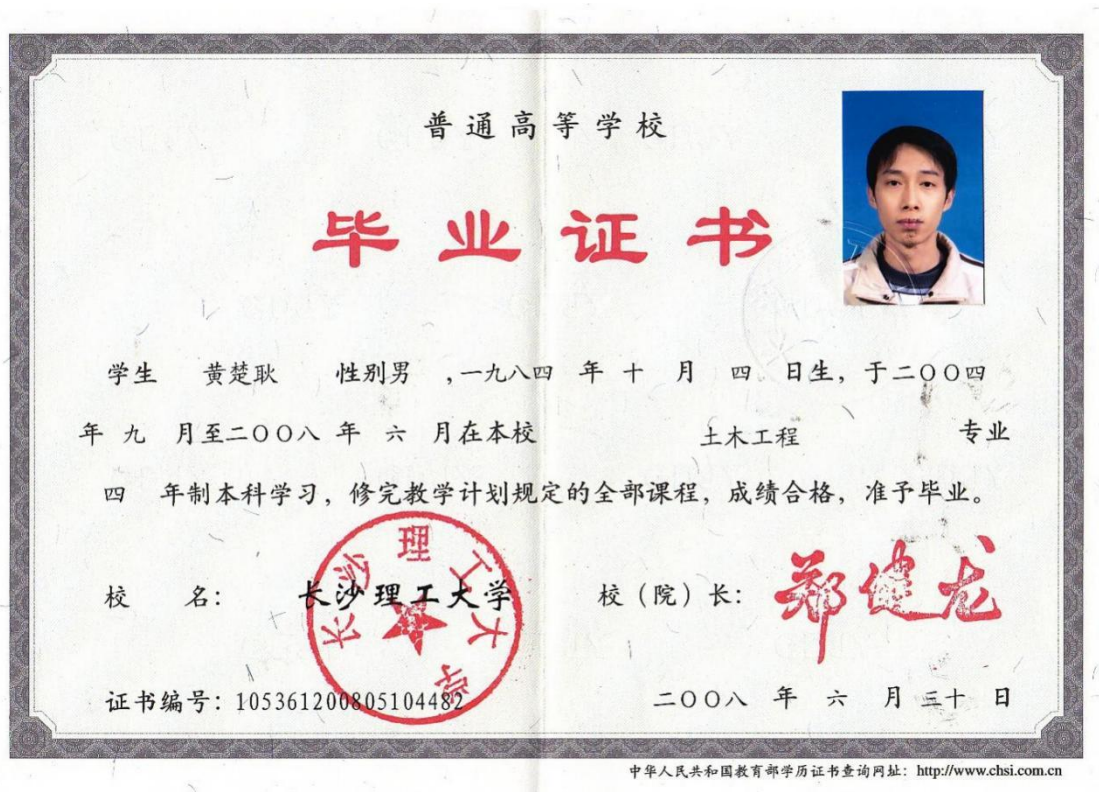 普通高等学校
毕业证书
学生 黄楚耿 性别男 ,一九八四 年 十 月 四 日生，于二〇〇四
年 九 月至二〇〇八 年 六 月在本校 土木工程 专业
四 年制本科学习，修完教学计划规定的全部课程，成绩合格，准予毕业。
校 名： 长沙理工大学 校（院）长： 郑健龙
长沙理工大学
证书编号：105361200805104482 二〇〇八 年 六 月 三十 日
中华人民共和国教育部学历证书查询网址：http://www.chsi.com.cn